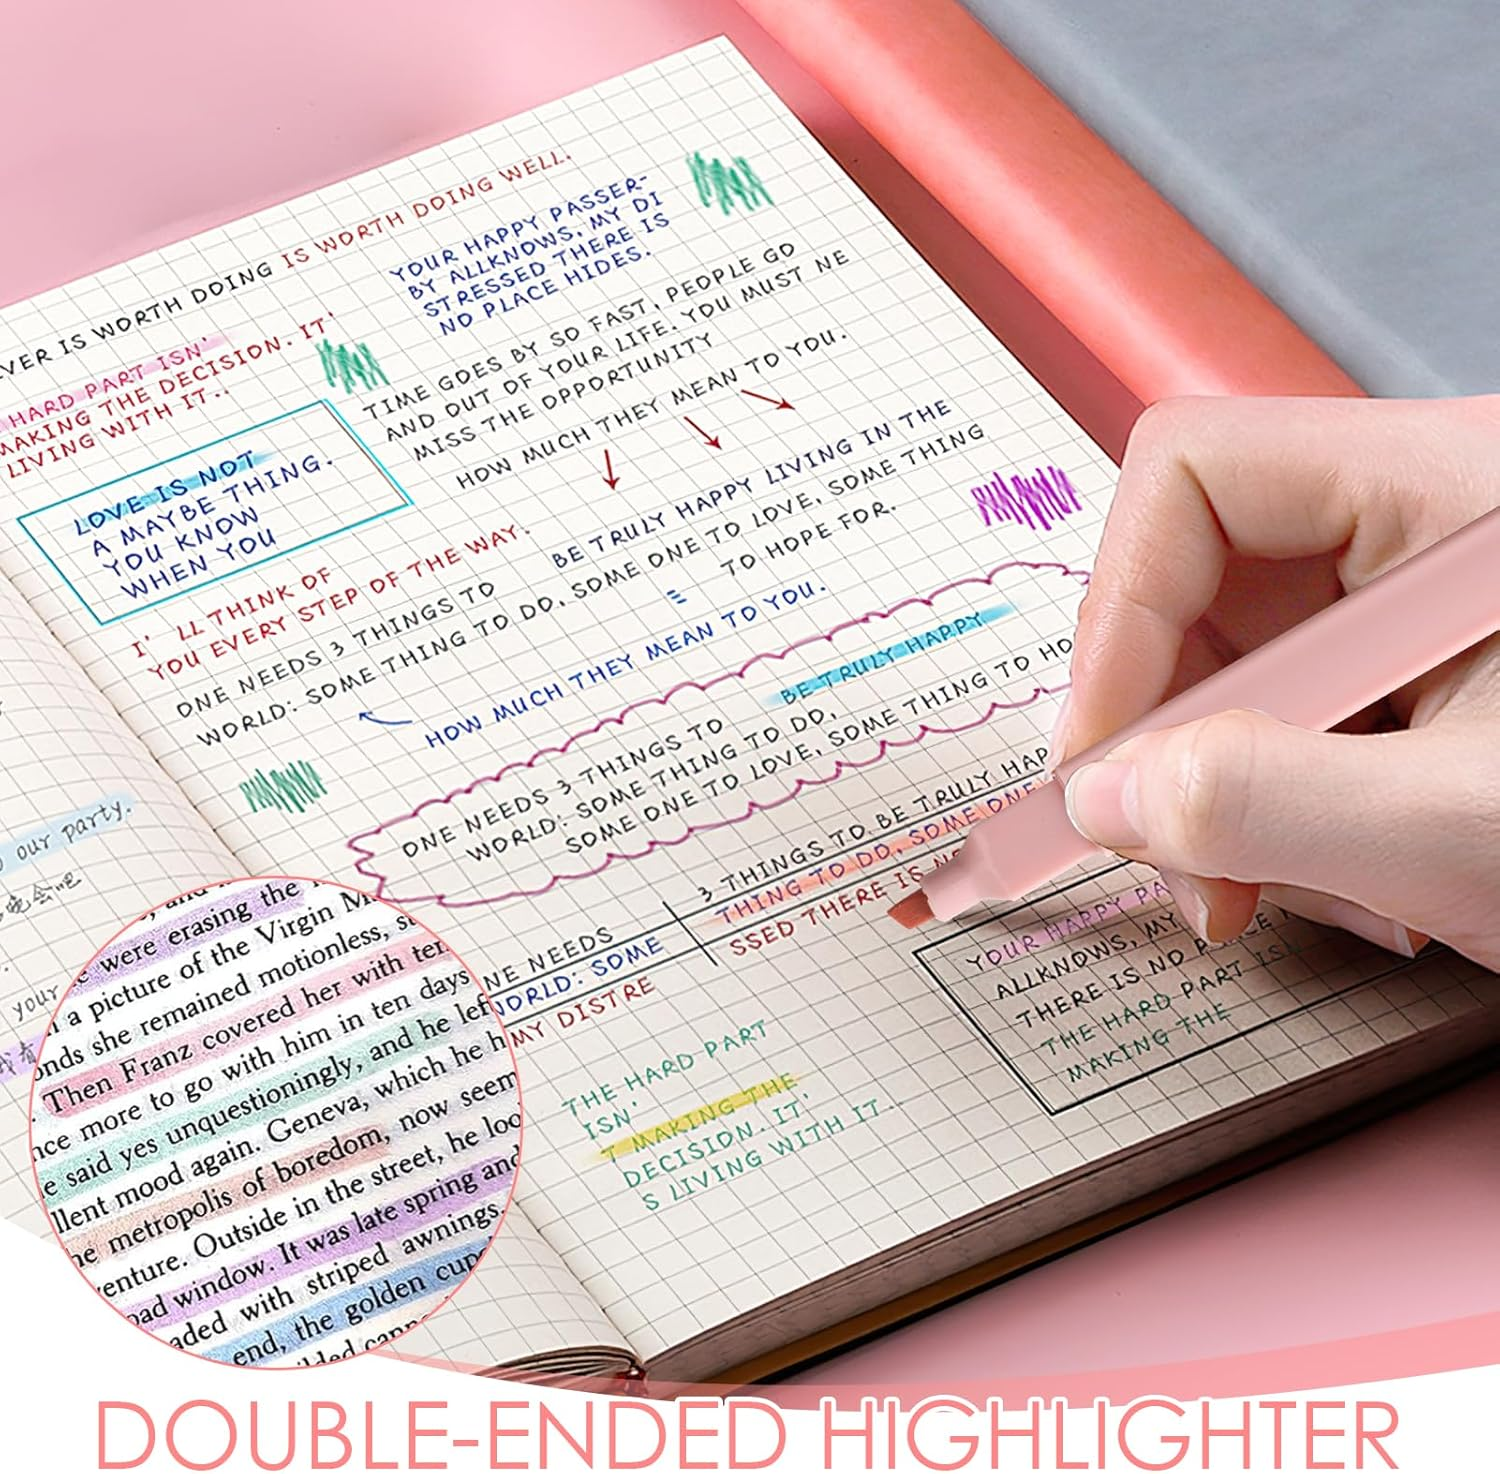 VER IS WORTH DOING IS WORTH DOING WELL.
YOUR HAPPY PASSER-
BY ALLKNOWS, MY DI
STRESSED THERE IS
NO PLACE HIDES.
HARD PART ISN'
MAKING THE DECISION. IT'
LIVING WITH IT..
TIME GOES BY SO FAST, PEOPLE GO
AND OUT OF YOUR LIFE. YOU MUST NE
MISS THE OPPORTUNITY
HOW MUCH THEY MEAN TO YOU.
LOVE IS NOT
A MAYBE THING.
YOU KNOW
WHEN YOU
BE TRULY HAPPY LIVING IN THE
I' LL THINK OF
YOU EVERY STEP OF THE WAY.
ONE NEEDS 3 THINGS TO
WORLD: SOME THING TO DO, SOME ONE TO LOVE, SOME THING
TO HOPE FOR.
HOW MUCH THEY MEAN TO YOU.
BE TRULY HAPPY
ONE NEEDS 3 THINGS TO
WORLD: SOME THING TO DO,
SOME ONE TO LOVE, SOME THING TO HO
3 THINGS TO BE TRULY HAP
THING TO DO, SOME ONE
SSED THERE IS
NE NEEDS
WORLD: SOME
MY DISTRE
YOUR HAPPY PA
ALLKNOWS, MY
THERE IS NO PLACE
THE HARD PART ISN
MAKING THE
THE HARD PART
ISN'
T MAKING THE
DECISION. IT'
S LIVING WITH IT..
our party.
your
were erasing the
a picture of the Virgin M
onds she remained motionless, s
Then Franz covered her with ten
nce more to go with him in ten days
e said yes unquestioningly, and he lef
llent mood again. Geneva, which he h
he metropolis of boredom, now seem
venture. Outside in the street, he loo
oad window. It was late spring and
aded with striped awnings.
end, the golden cup
DOUBLE-ENDED HIGHLIGHTER